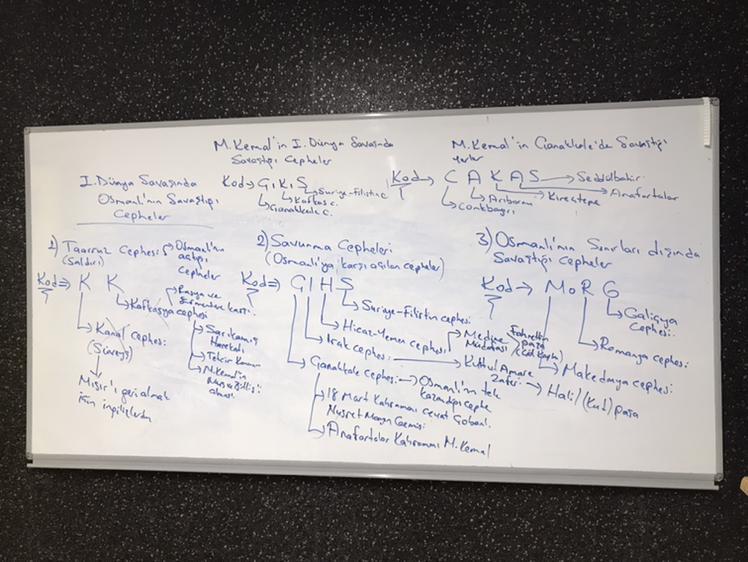 M.Kemal'in I. Dünya Savaşında
Savaştığı Cepheler
Kod→ Ç I K I S
→Suriye-Filistin c.
→Kafkas c.
→Çanakkale c.
M.Kemal'in Çanakkale'de Savaştığı
Yerler
Kod→ C A K A S →Seddülbahir
→Anafartalar
→Kireçtepe
→Arıburnu
→Conkbayırı
I. Dünya Savaşında
Osmanlı'nın Savaştığı
Cepheler
1) Taarruz Cephesi →Osmanlı'nın
(Saldırı) açtığı
Cepheler
Kod⇒ K K
→Rusya ve
Ermenilere karşı
→Kafkasya cephesi
→Sarıkamış
Harekatı
→Tehcir Kanunu
→M.Kemal'in
Muş ve Bitlis'i
alması
→Kanal cephesi
(Süveyş)
→Mısır'ı geri almak
için ingilizlerden
2) Savunma Cepheleri
(Osmanlı'ya karşı açılan cepheler)
Kod⇒ Ç I H S
→Suriye-Filistin cephesi
→Hicaz-Yemen cephesi →Medine Müdafaası →Fahrettin paşa
→Irak cephesi → Kuttul Amare Zaferi → Halil (Kut) paşa
→Çanakkale cephesi → Osmanlı'nın tek
kazandığı cephe
→18 Mart Kahramanı Cevat Çobanlı
Nusret Mayın Gemisi
→Anafartalar Kahramanı M.Kemal
3) Osmanlı'nın Sınırları dışında
Savaştığı Cepheler
Kod→ M o R G
→Galiçya
Cephesi
→Romanya cephesi
→Makedonya cephesi